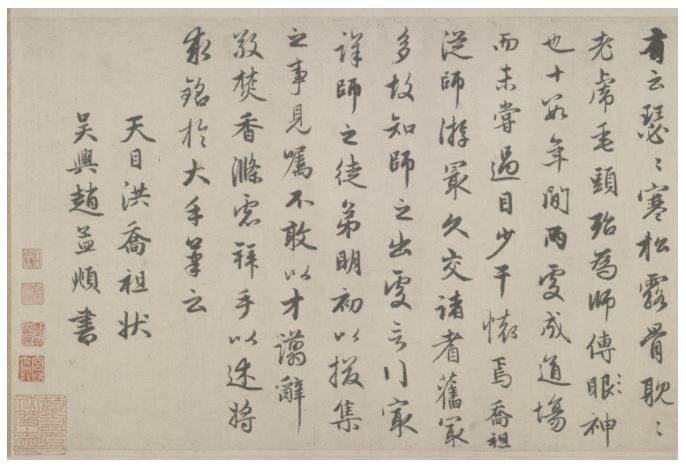 有云瑟〻寒松露骨耽〻
老虎毛頭殆為師傳眼神
也十數年間兩處成道場
而未嘗過目少干懷焉喬祖
從師游最久交諸耆舊最
多故知師之出處言行最
詳師之徒弟明初以掇集
之事見囑不敢以才譾辭
敬焚香滌慮拜手以述將
求銘於大手筆云
天目洪喬祖狀
吳興趙孟頫書